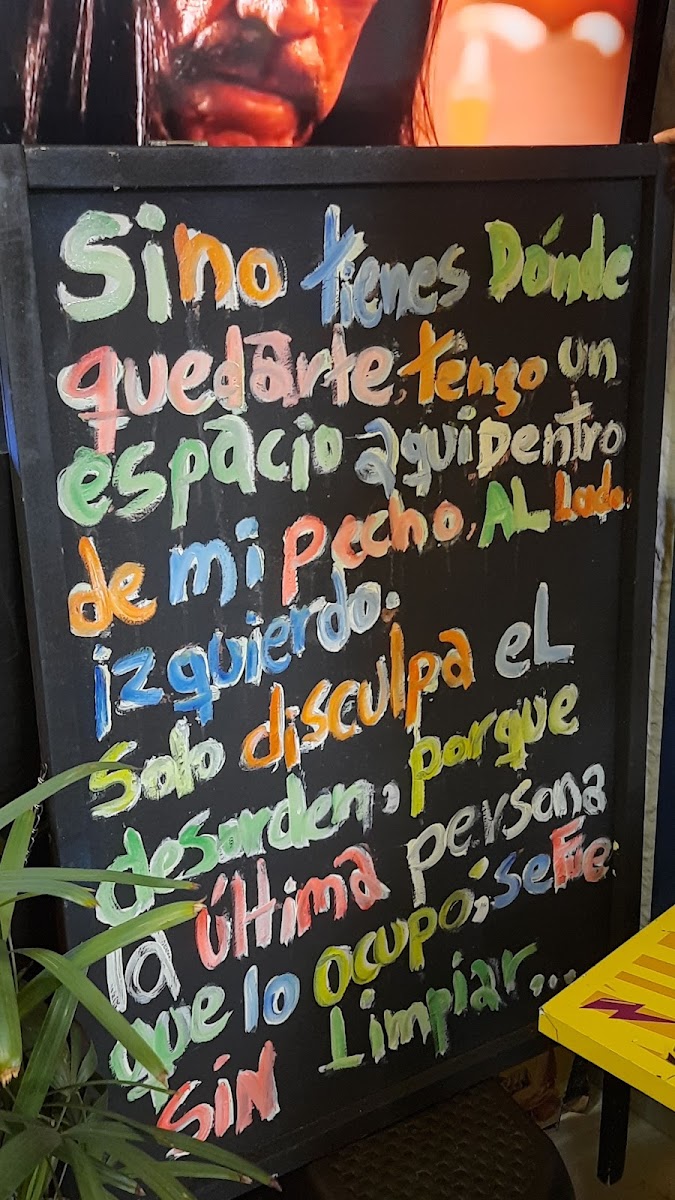 Sino tienes Dónde
quedarte, tengo un
espacio aquí Dentro
de mi pecho, AL Lado
izquierdo.
Solo disculpa eL
desorden, porque
la última persona
que lo ocupó; se Fue
SIN Limpiar...